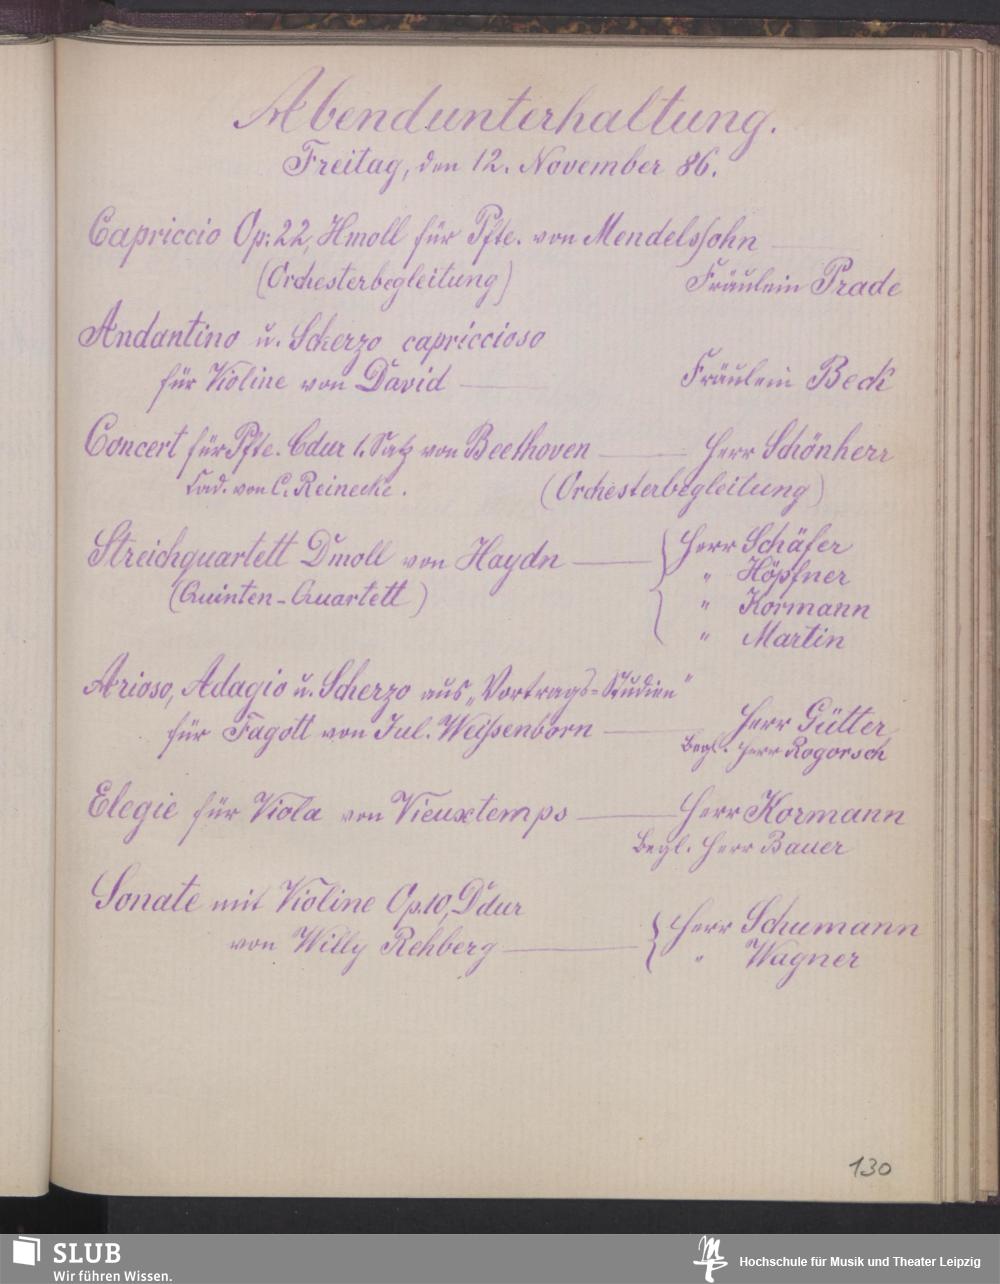 Abendunterhaltung.
Freitag, den 12. November 86.
Capriccio Op: 22, Hmoll für Pfte. von Mendelssohn
(Orchesterbegleitung) Fräulein Prade
Andantino u. Scherzo capriccioso
für Violine von David Fräulein Beck
Concert für Pfte. Cdur 1. Satz von Beethoven Herr Schönherr
Cad. von C. Reinecke. (Orchesterbegleitung)
Streichquartett Dmoll von Haydn Herr Schäfer
(Quinten-Quartett) " Höpfner
" Kormann
" Martin
Arioso, Adagio u. Scherzo aus „Vortrags=Studien"
für Fagott von Jul. Weißenborn Herr Gütter
Begl. Herr Rogorsch
Elegie für Viola von Vieuxtemps Herr Kormann
Begl. Herr Bauer
Sonate mit Violine Op. 10, Ddur Herr Schumann
von Willy Rehberg " Wagner
130
SLUB
Wir führen Wissen.
Hochschule für Musik und Theater Leipzig